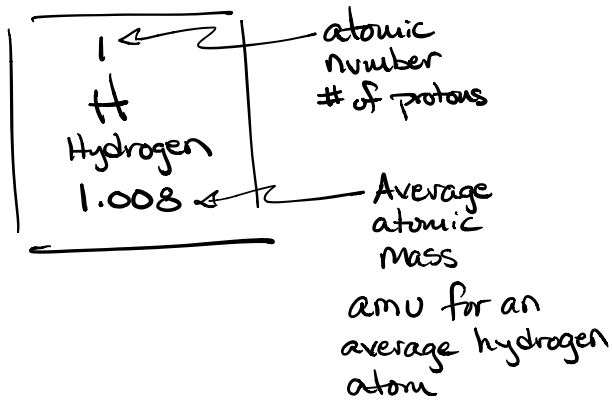 1
H
Hydrogen
1.008
atomic
number
# of protons
Average
atomic
mass
amu for an
average hydrogen
atom